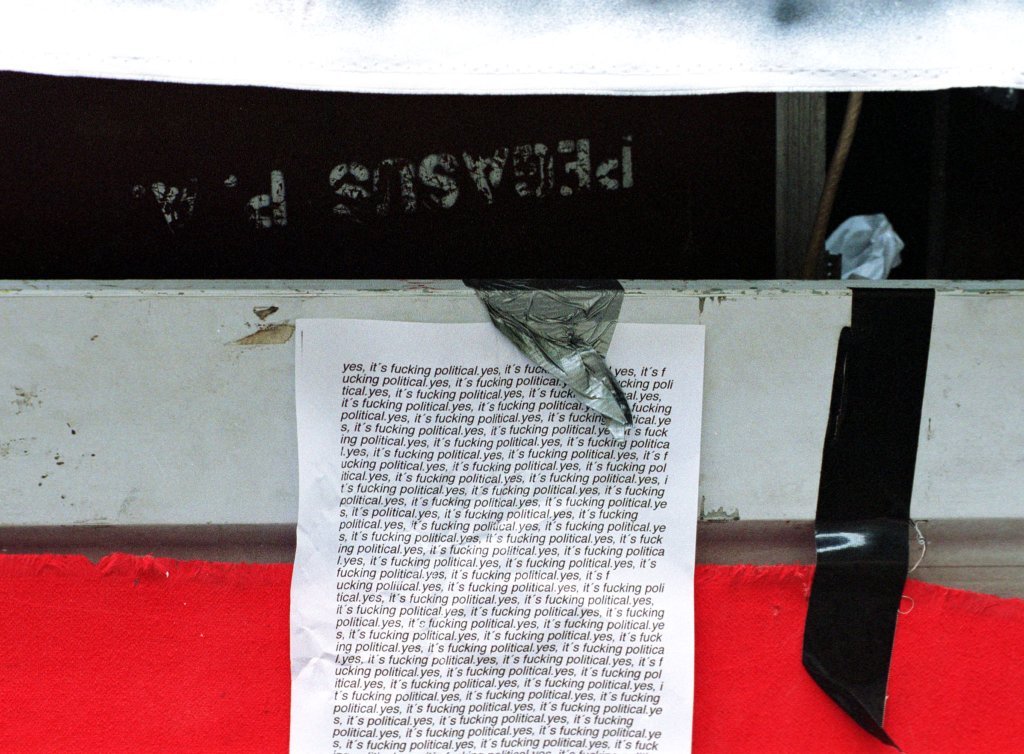 PEGASUS P.A.
yes, it´s fucking political.yes, it´s fuc yes, it´s f
ucking political.yes, it´s fucking political. ucking poli
tical.yes, it´s fucking political.yes, it´s fuck al.yes,
it´s fucking political.yes, it´s fucking political.y fucking
political.yes, it´s fucking political.yes, it´s fucking tical.ye
s, it´s fucking political.yes, it´s fucking political.yes, it´s fuck
ing political.yes, it´s fucking political.yes, it´s fucking politica
l.yes, it´s fucking political.yes, it´s fucking political.yes, it´s f
ucking political.yes, it´s fucking political.yes, it´s fucking pol
itical.yes, it´s fucking political.yes, it´s fucking political.yes, i
t´s fucking political.yes, it´s fucking political.yes, it´s fucking
political.yes, it´s fucking political.yes, it´s fucking political.ye
s, it´s political.yes, it´s fucking political.yes, it´s fucking
political.yes, it´s fucking political.yes, it´s fucking political.ye
s, it´s fucking political.yes, it´s fucking political.yes, it´s fuck
ing political.yes, it´s fucking political.yes, it´s fucking politica
l.yes, it´s fucking political.yes, it´s fucking political.yes, it´s
fucking political.yes, it´s fucking political.yes, it´s f
ucking political.yes, it´s fucking political.yes, it´s fucking poli
tical.yes, it´s fucking political.yes, it´s fucking political.yes,
it´s fucking political.yes, it´s fucking political.yes, it´s fucking
political.yes, it´s fucking political.yes, it´s fucking political.ye
s, it´s fucking political.yes, it´s fucking political.yes, it´s fuck
ing political.yes, it´s fucking political.yes, it´s fucking politica
l.yes, it´s fucking political.yes, it´s fucking political.yes, it´s f
ucking political.yes, it´s fucking political.yes, it´s fucking pol
itical.yes, it´s fucking political.yes, it´s fucking political.yes, i
t´s fucking political.yes, it´s fucking political.yes, it´s fucking
political.yes, it´s fucking political.yes, it´s fucking political.ye
s, it´s political.yes, it´s fucking political.yes, it´s fucking
political.yes, it´s fucking political.yes, it´s fucking political.ye
s, it´s fucking political.yes, it´s fucking political.yes, it´s fuck